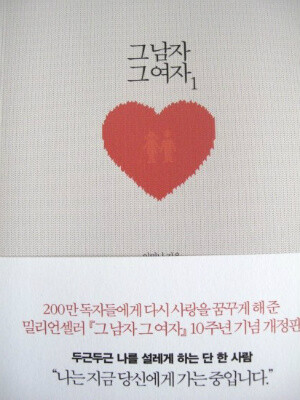 그 남자
그 여자 1
200만 독자들에게 다시 사랑을 꿈꾸게 해 준
밀리언셀러 『그 남자 그 여자』 10주년 기념 개정판
두근두근 나를 설레게 하는 단 한 사람
“나는 지금 당신에게 가는 중입니다.”